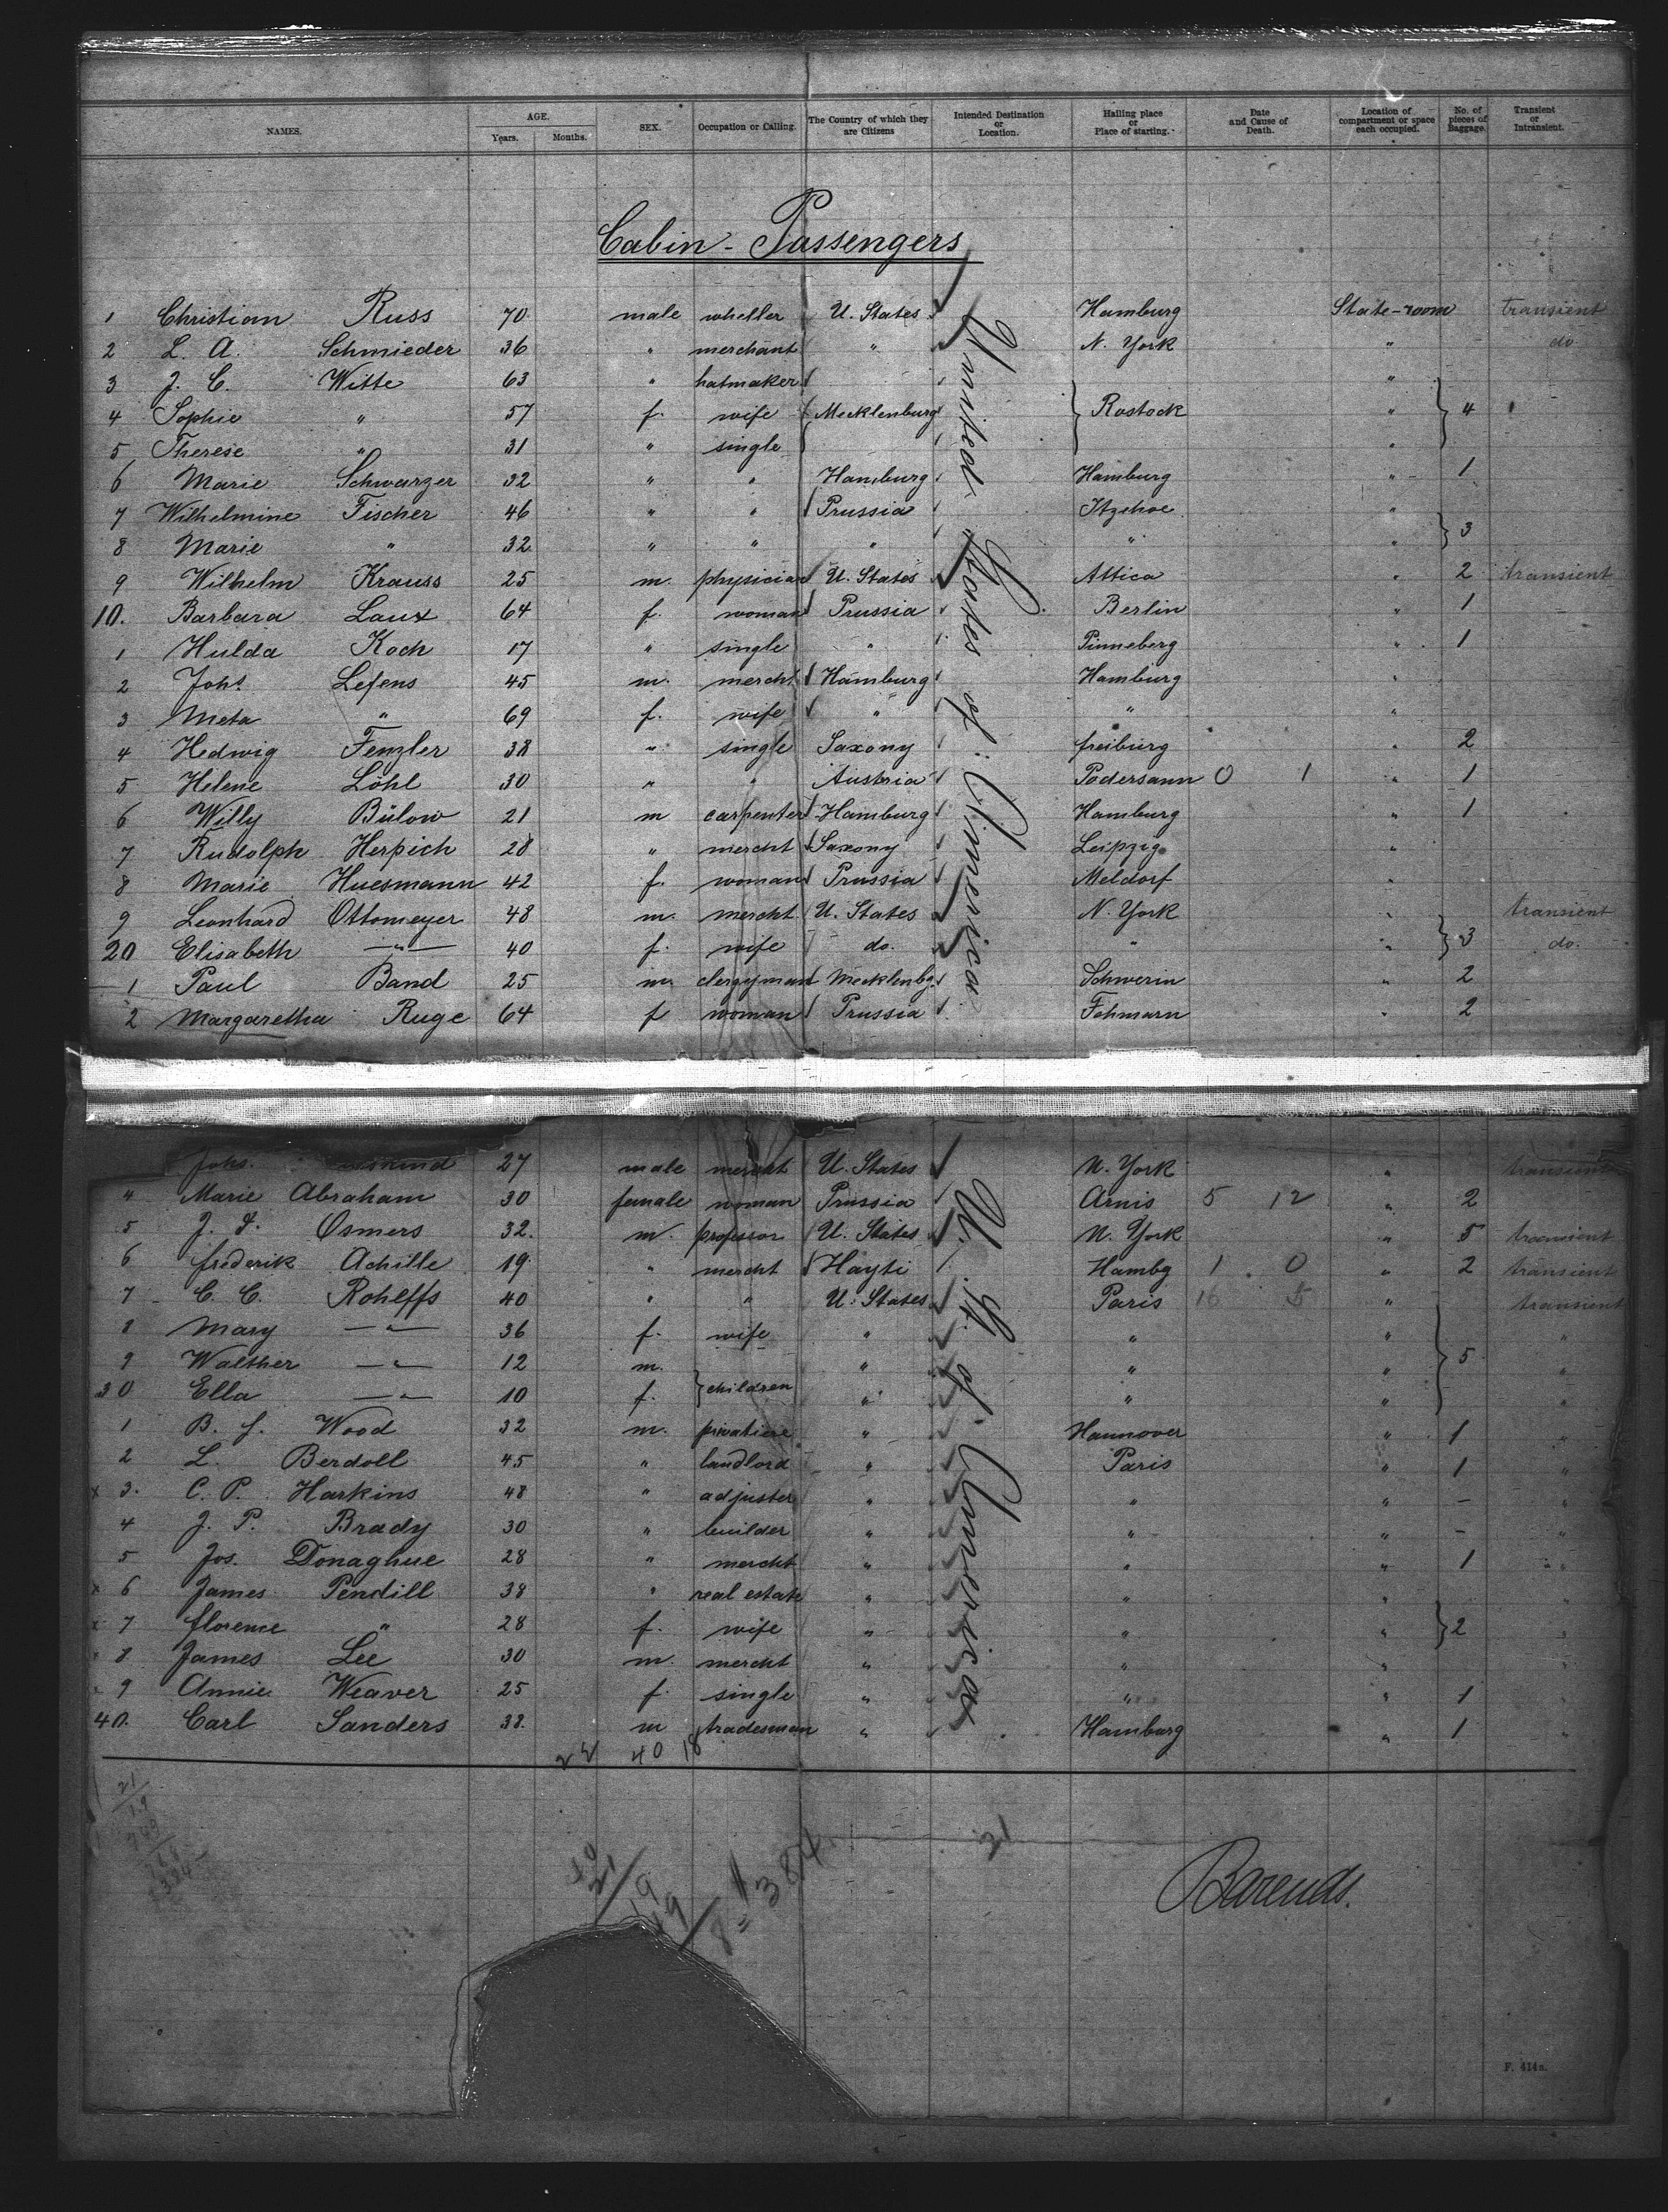 NAMES. AGE. Years. Months. SEX. Occupation or Calling. The Country of which they are Citizens Intended Destination or Location. Hailing place or Place of starting. Date and Cause of Death. Location of compartment or space each occupied. No. of pieces of Baggage. Transient or Intransient.
Cabin - Passengers
United States of America
1 Christian Russ 70 male wheller U. States Hamburg State-room transient
2 L. A. Schmieder 36 " merchant " N. York " do
3 J. C. Witte 63 " hatmaker "
4 Sophie " 57 f. wife Mecklenburg Rostock " 4
5 Therese " 31 " single "
6 Marie Schwarzer 32 " " Hamburg Hamburg " 1
7 Wilhelmine Fischer 46 " " Prussia Itzehoe "
8 Marie " 32 " " " " " 3
9 Wilhelm Krauss 25 m. physician U. States Attica " 2 transient
10. Barbara Laux 64 f. woman Prussia Berlin " 1
1 Hulda Koch 17 " single " Pinneberg " 1
2 Johs. Lefens 45 m. mercht Hamburg Hamburg "
3 Meta " 69 f. wife " " "
4 Hedwig Fenzler 38 " single Saxony freiburg " 2
5 Helene Löhl 30 " " Austria Podersann 0 1 " 1
6 Willy Bülow 21 m carpenter Hamburg Hamburg " 1
7 Rudolph Herpich 28 " mercht Saxony Leipzig "
8 Marie Huesmann 42 f. woman Prussia Meldorf "
9 Leonhard Ottomeyer 48 m. mercht U. States N. York " transient
20 Elisabeth —"— 40 f. wife do. " " 3 do.
1 Paul Band 25 m. clergyman Mecklenbg. Schwerin " 2
2 Margaretha Ruge 64 f woman Prussia Fehmarn " 2
Johs. 27 male mercht U. States N. York " transient
U. St. of America
4 Marie Abraham 30 female woman Prussia Arnis 5 12 " 2
5 J. F. Osmers 32. m. professor U. States N. York " 5 transient
6 frederik Achille 19 " mercht Hayti Hambg 1 0 " 2 transient
7 C. C. Rohlffs 40 " " U. States Paris 16 " transient
8 Mary —"— 36 f. wife " " " "
9 Walther —"— 12 m. " " " 5 "
30 Ella —"— 10 f. children " " " "
1 B. f. Wood 32 m. " Hannover " 1 "
2 L. Berdoll 45 " landlord " Paris " 1 "
x 3. C. P. Harkins 48 " adjuster " " " – "
4 J. P. Brady 30 " builder " " " – "
5 Jos. Donaghue 28 " mercht " " " 1 "
x 6 James Pendill 38 " real estate " " " "
x 7 florence " 28 f. wife " " " 2 "
8 James Lee 30 m. mercht " " " "
9 Annie Weaver 25 f. single " " " 1 "
40. Carl Sanders 38. m tradesman " Hamburg " 1 "
22 40 18
21
21
19
384
Barends.
F. 414a.